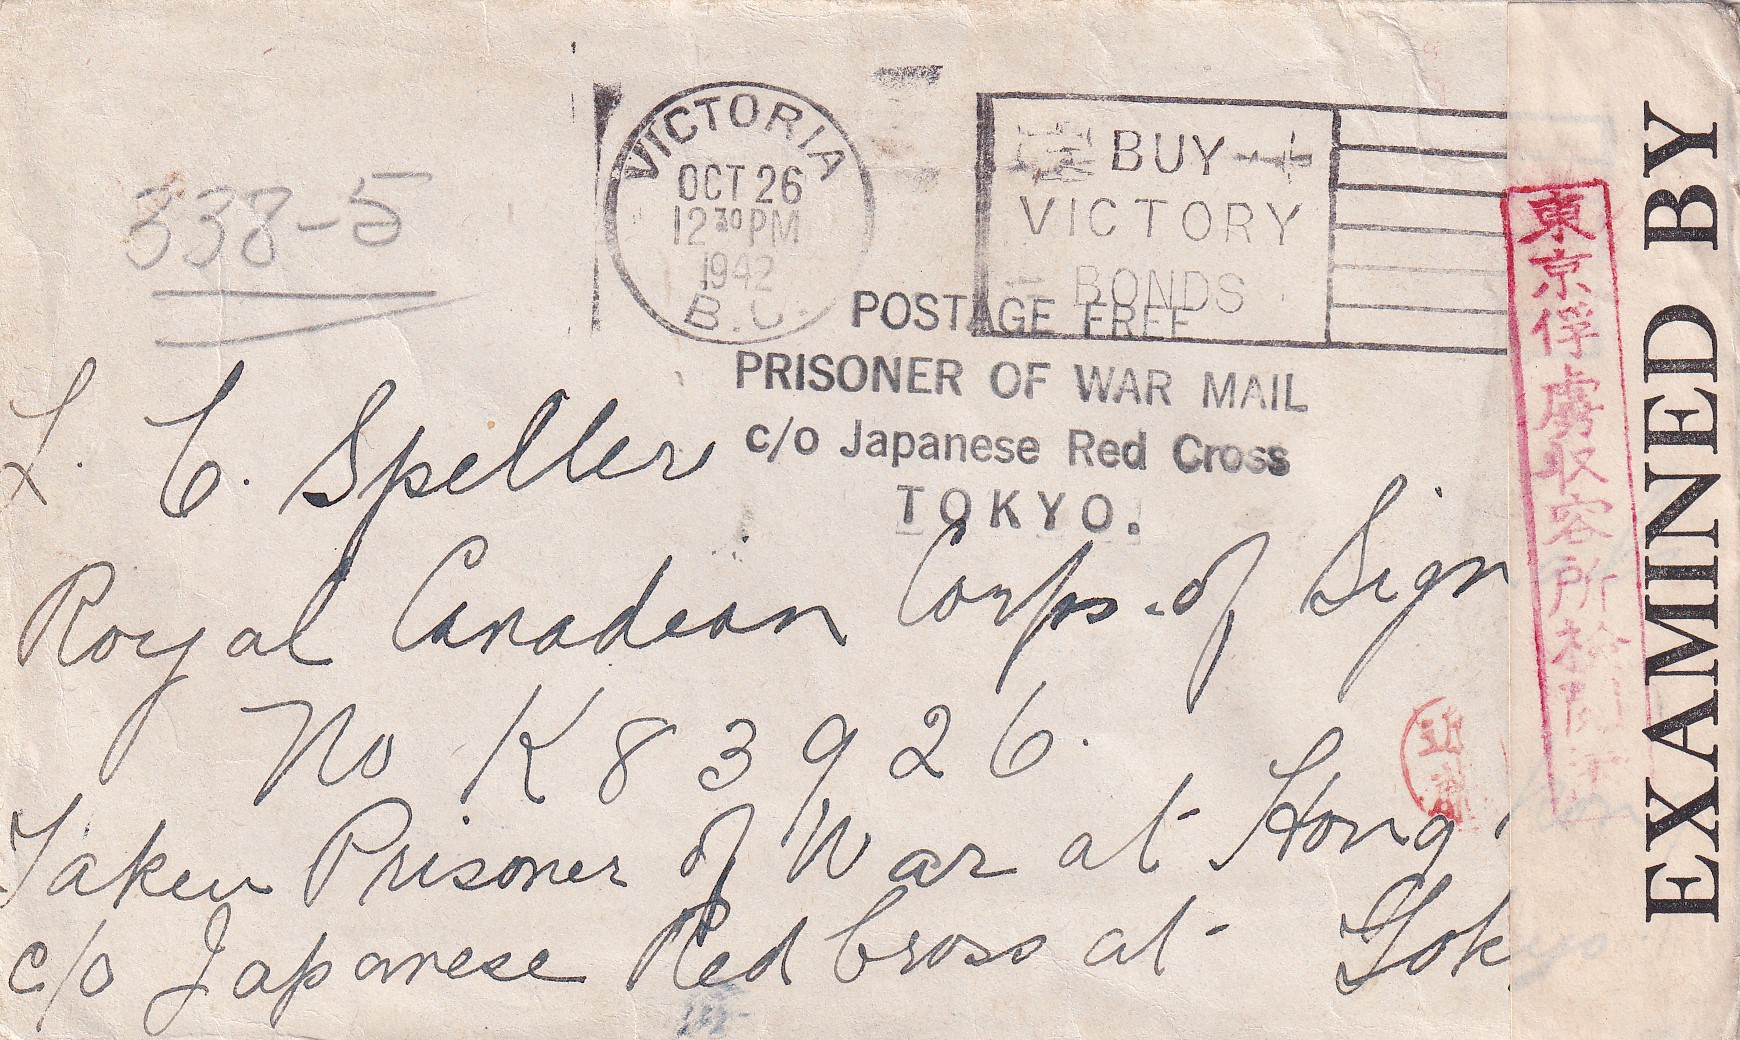 VICTORIA
OCT 26
12 30 PM
1942
B.C.
BUY
VICTORY
BONDS
338-5
POSTAGE FREE
PRISONER OF WAR MAIL
c/o Japanese Red Cross
TOKYO.
L. C. Speller
Royal Canadian Corps of Sign
No K 83926.
Taken Prisoner of War at Hong Kon
c/o Japanese Red Cross at Tokyo
東京俘虜収容所検閲済
EXAMINED BY